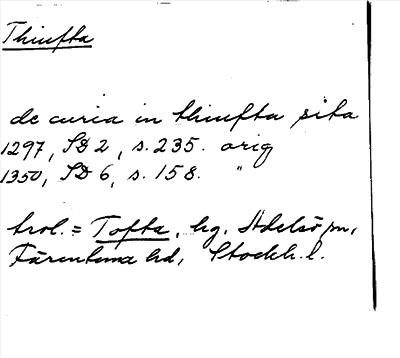 Thiufta
de curia in thiufta sita
1297, SD 2, s. 235. orig
1350, SD 6, s. 158. "
trol. = Tofta, hg, Adelsö sn,
Färentuna hd, Stockh. l.